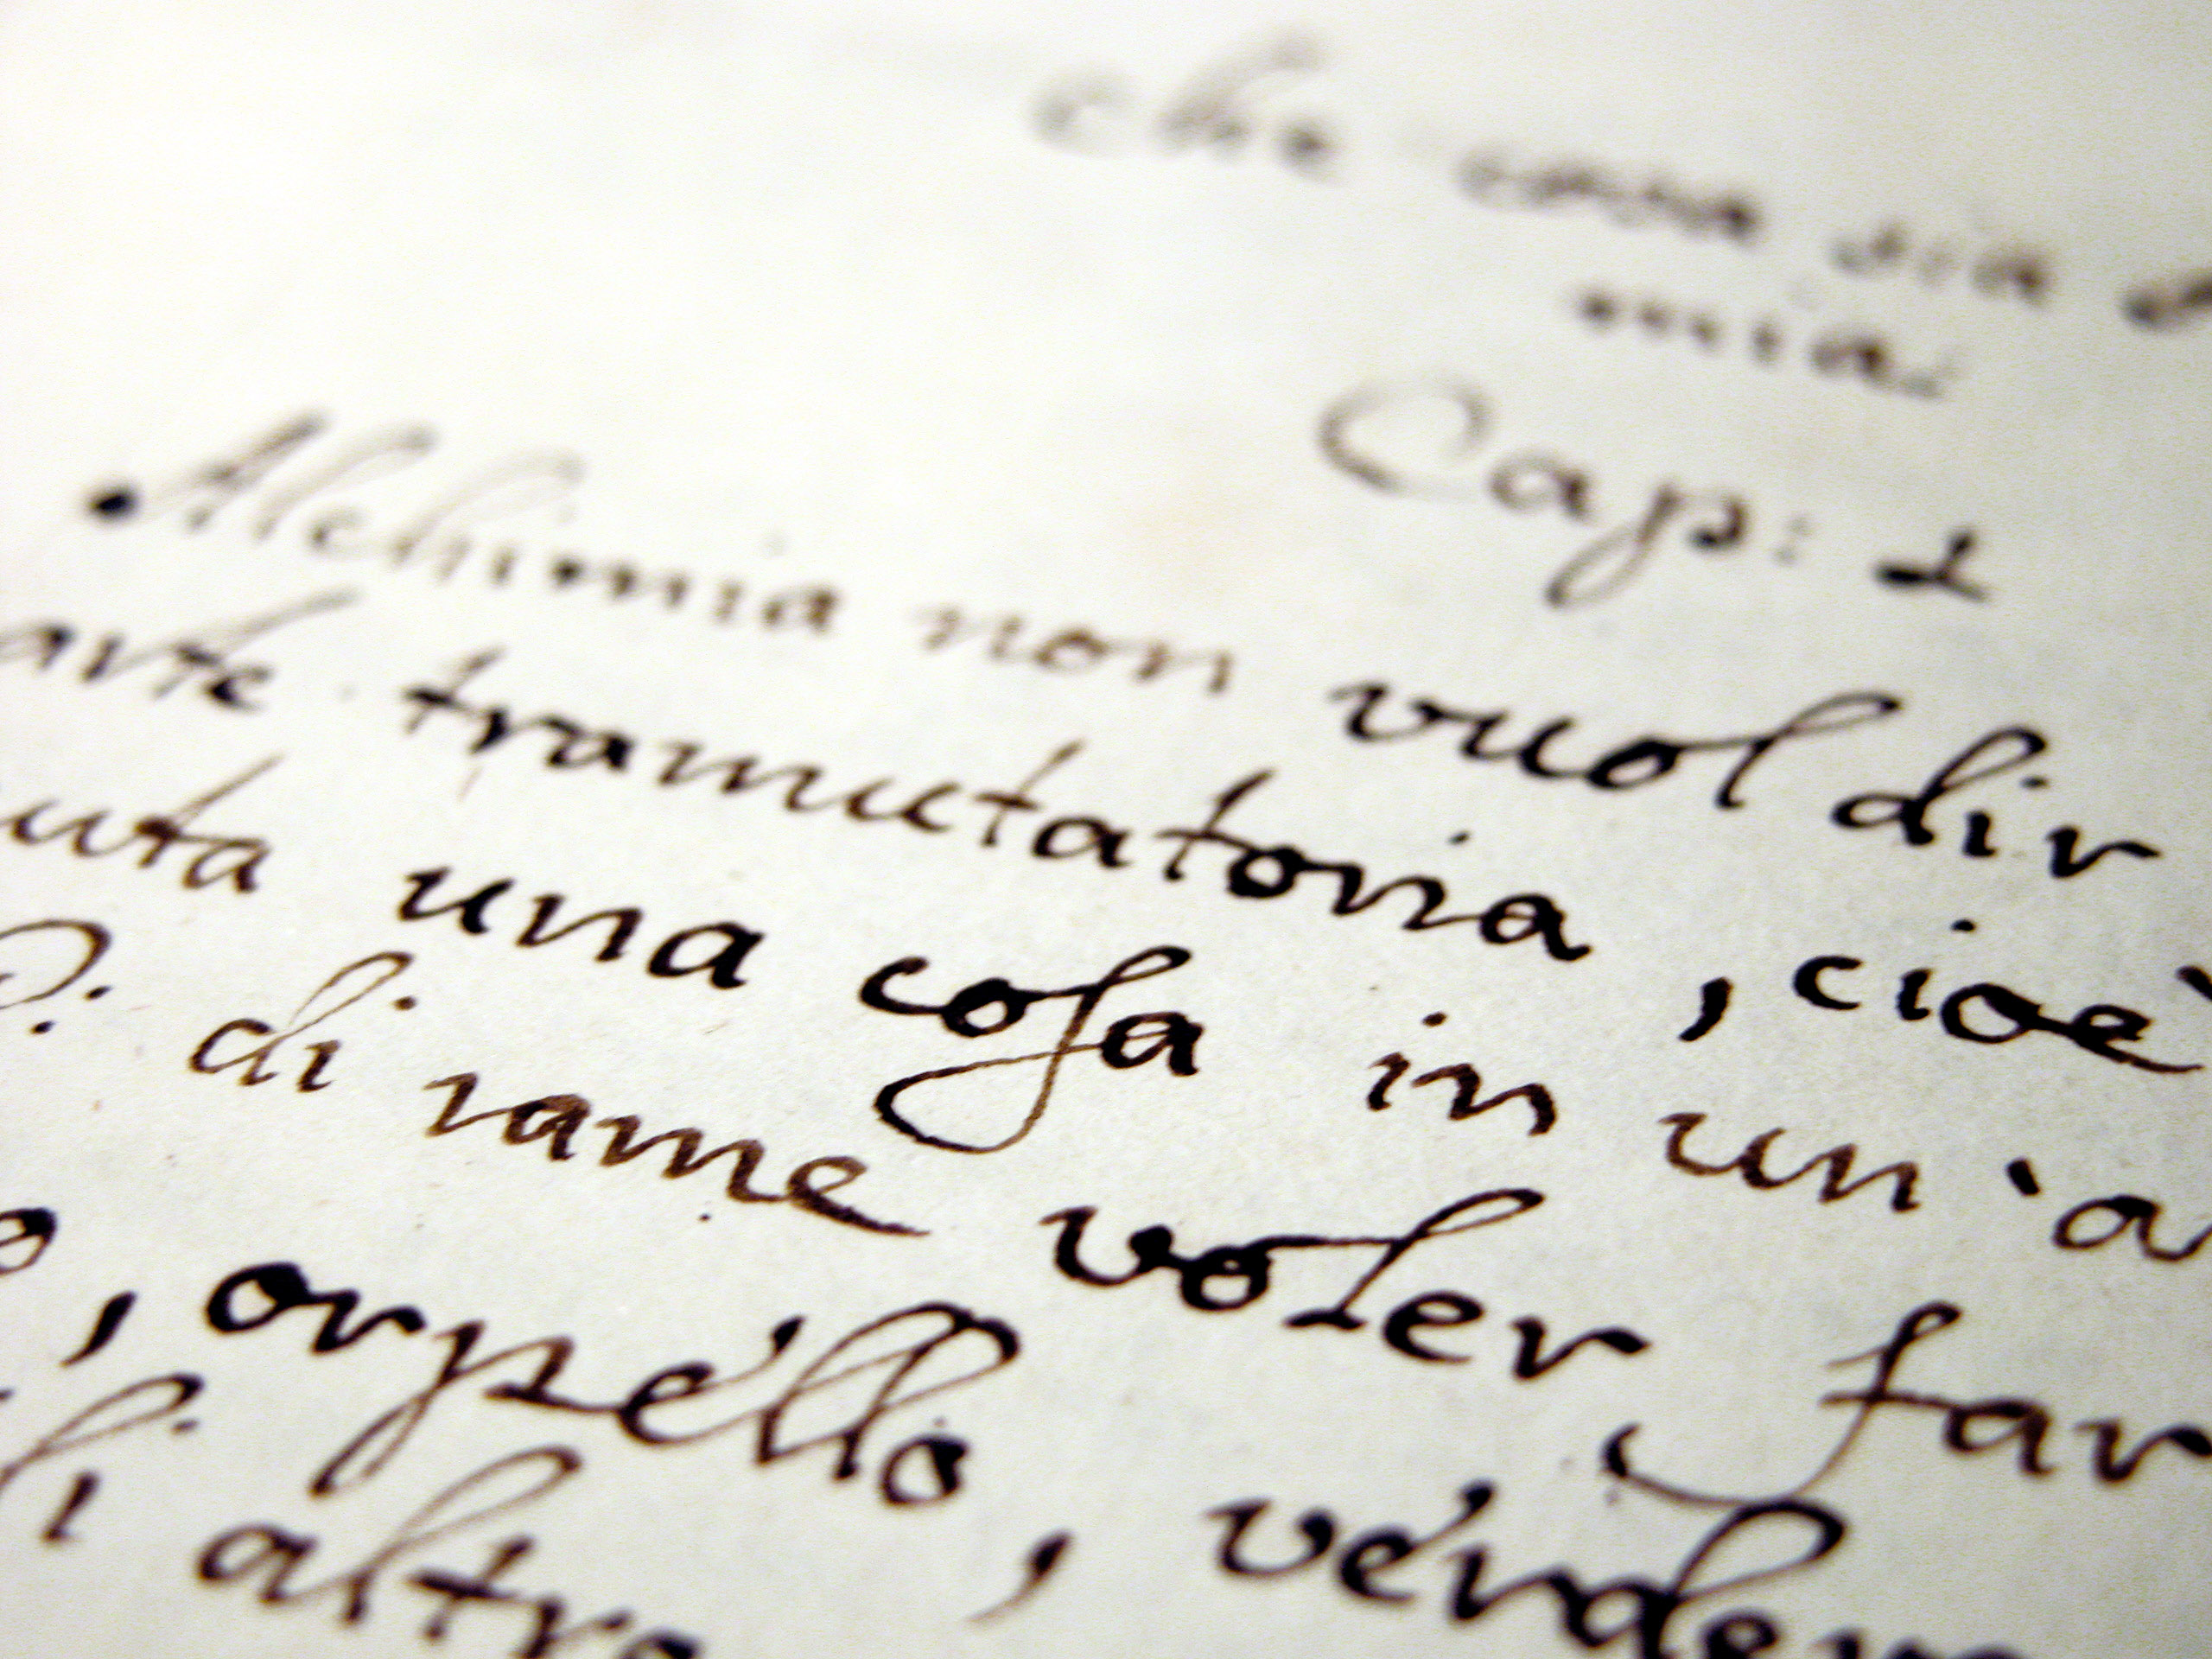 che cosa sia
mia.
Cap: 1
Alchimia non vuol dir
arte tramutatoria, cioè
uta una coſa in un'a
P: di rame voler far
o, orpéllo, vérder
li altro